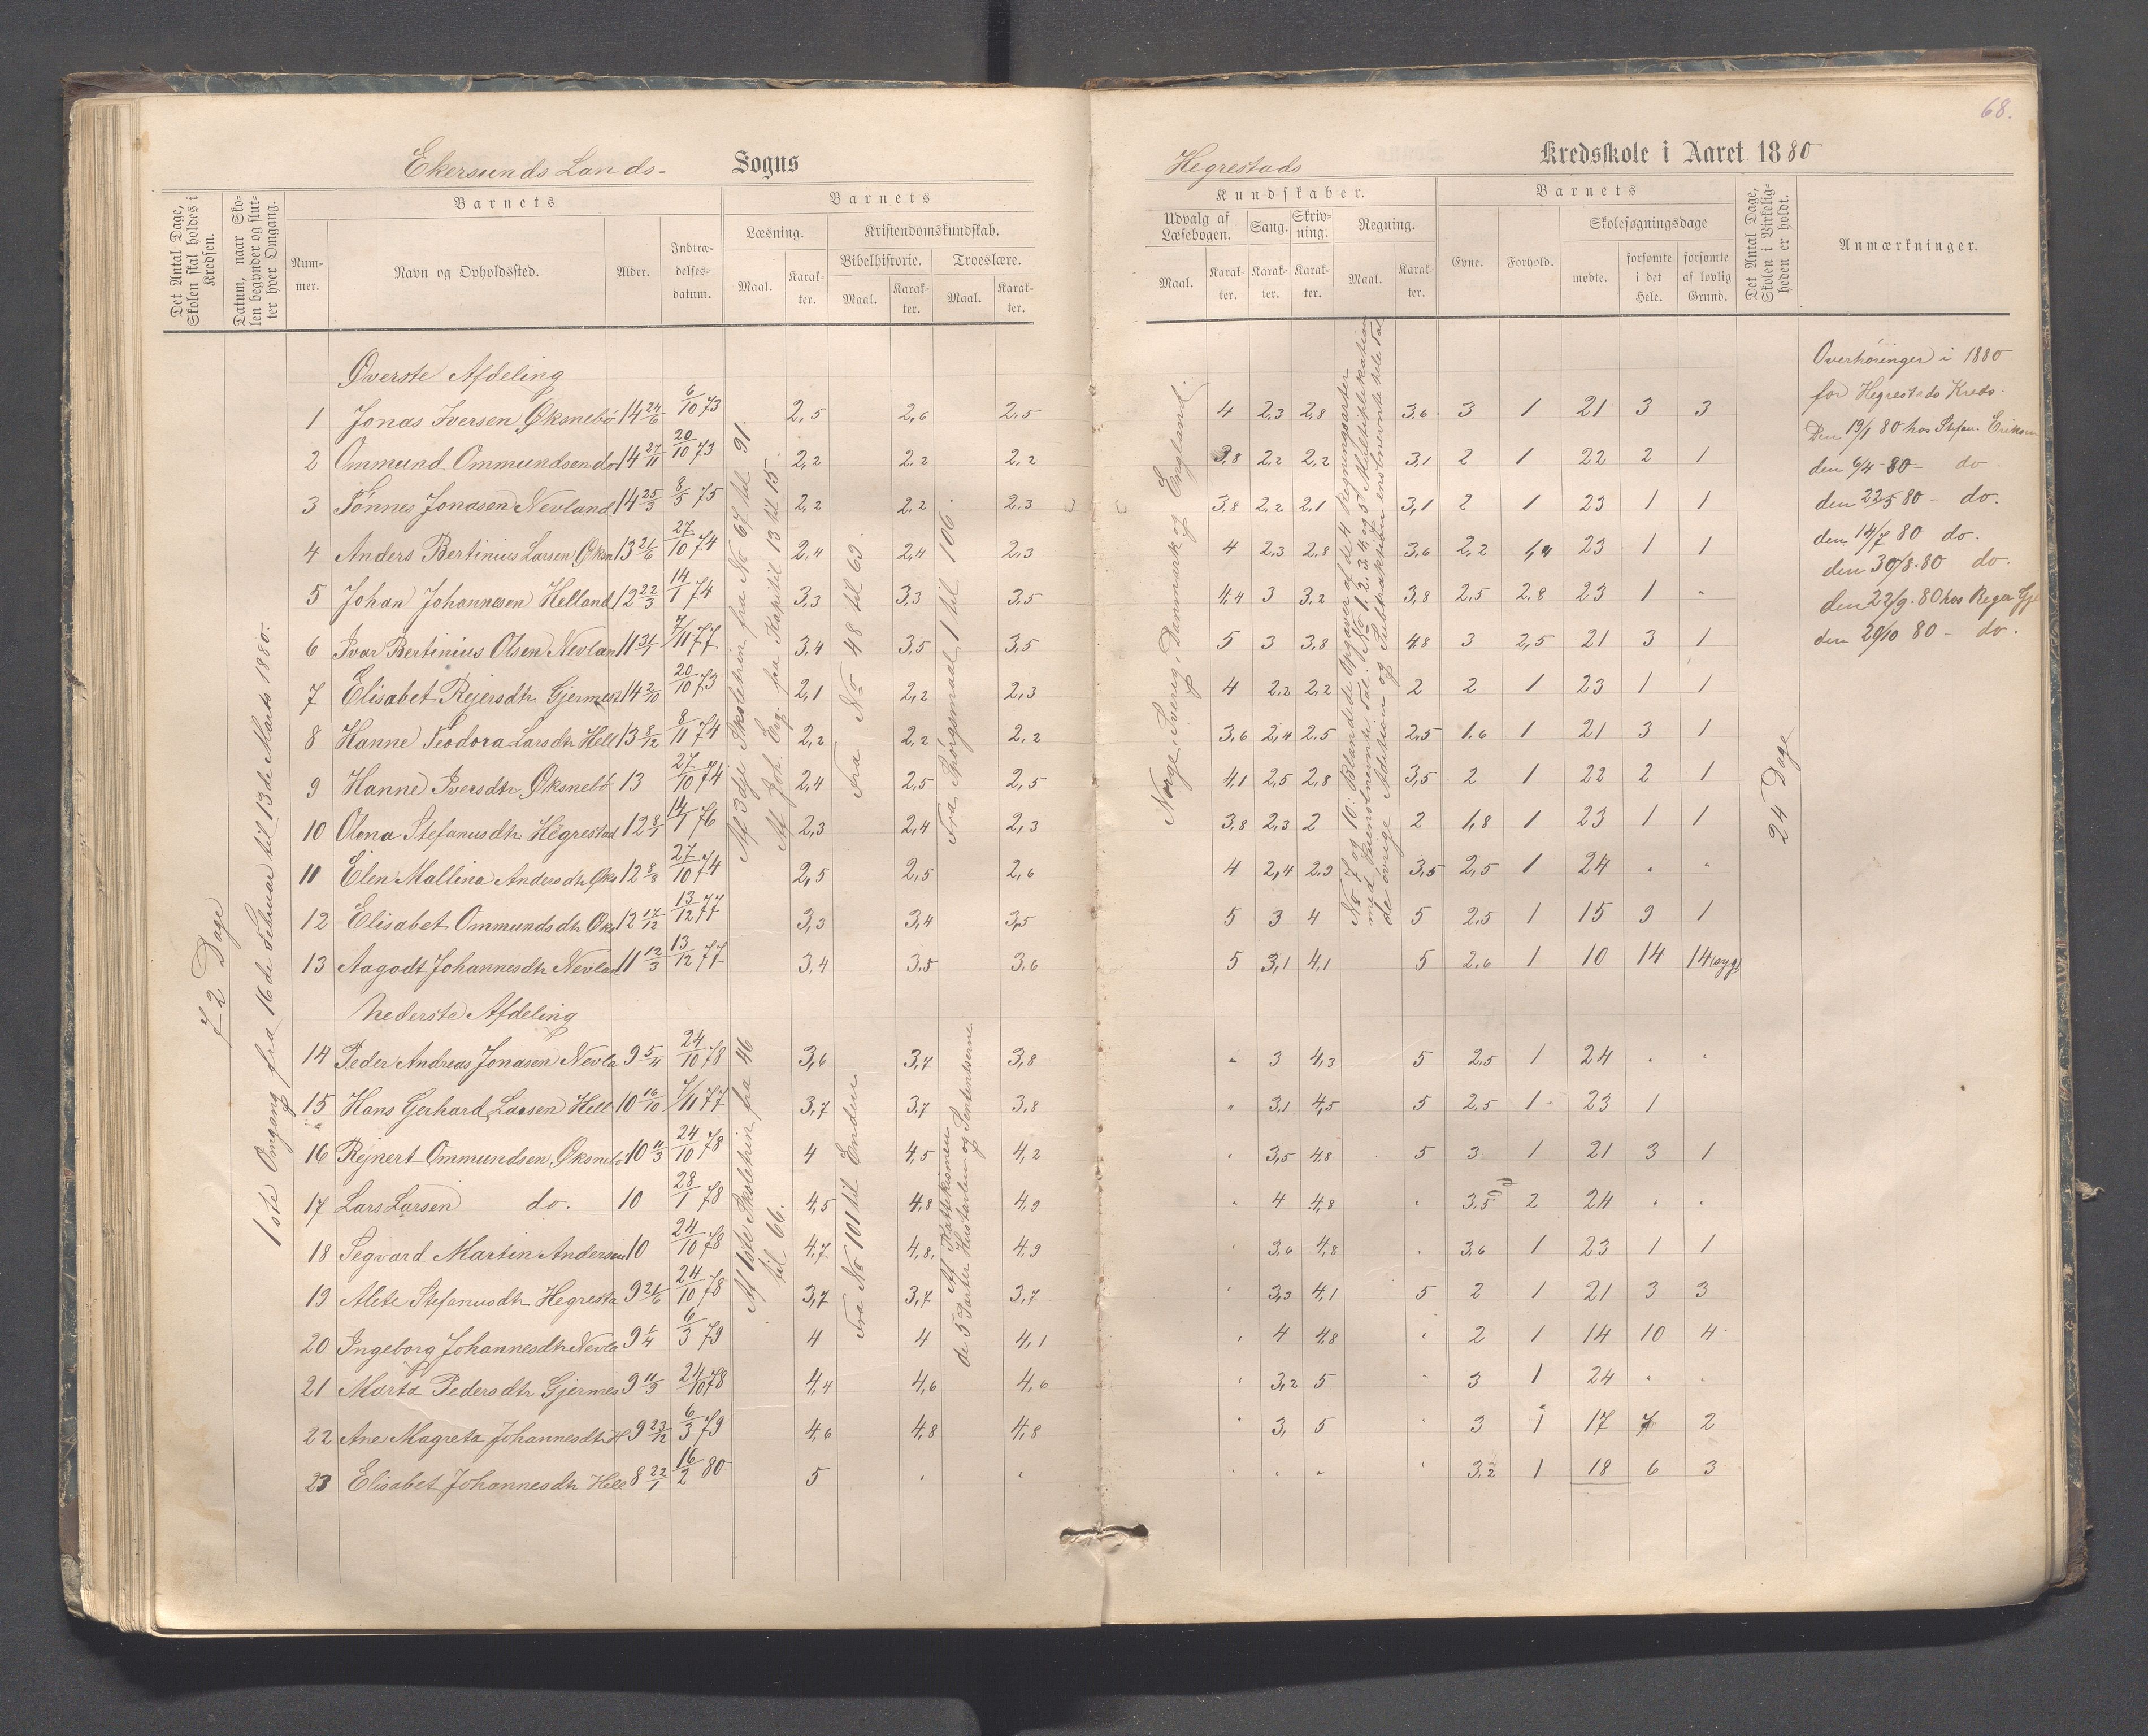 68.
Ekersunds Lands- Sogns
Hegrestads Kredsskole i Aaret 1880
Det Antal Dage, Skolen skal holdes i Kredsen.
Datum, naar Skolen begynder og slutter hver Omgang.
Barnets
Nummer.
Navn og Opholdssted.
Alder.
Indtrædelsesdatum.
Barnets
Læsning.
Maal.
Karakter.
Kristendomskundskab.
Bibelhistorie.
Maal.
Karakter.
Troeslære.
Maal.
Karakter.
Kundskaber.
Udvalg af Læsebogen.
Maal.
Karakter.
Sang.
Karakter.
Skrivning.
Karakter.
Regning.
Maal.
Karakter.
Barnets
Evne.
Forhold.
Skolesøgningsdage
mødte.
forsømte i det Hele.
forsømte af lovlig Grund.
Det Antal Dage, Skolen i Virkeligheden er holdt.
Anmærkninger.
72 Dage
1ste Omgang fra 16de Februar til 13de Marts 1880.
Øverste Afdeling
1 Jonas Iversen Øksnebø 14 24/6 6/10 73 2,5 2,6 2,5 4 2,3 2,8 3,6 3 1 21 3 3
2 Ommund Ommundsen do 14 27/11 20/10 73 2,2 2,2 2,2 3,8 2,2 2,2 3,1 2 1 22 2 1
3 Tønnes Jonasen Nevland 14 25/3 8/5 75 2,2 2,2 2,3 3,8 2,2 2,1 3,1 2 1 23 1 1
4 Anders Bertinius Larsen Øksn 13 21/6 27/10 74 2,4 2,4 2,3 4 2,3 2,8 3,6 2,2 1,4 23 1 1
5 Johan Johannesen Helland 12 22/3 14/1 74 3,3 3,3 3,5 4,4 3 3,2 3,8 2,5 2,8 23 1 "
6 Ivar Bertinius Olsen Nevlan 11 7/11 77 3,4 3,5 3,5 5 3 3,8 4,8 3 2,5 21 3 1
7 Elisabet Rejersdtr. Gjermest 14 2/10 20/10 73 2,1 2,2 2,3 4 2,2 2,2 2 2 1 23 1 1
8 Hanne Teodora Larsdtr Hell 13 8/12 8/11 74 2,2 2,2 2,2 3,6 2,4 2,5 2,5 1,6 1 21 3 1
9 Hanne Iversdtr. Øksnebø 13 27/10 74 2,4 2,5 2,5 4,1 2,5 2,8 3,5 2 1 22 2 1
10 Olena Stefanusdtr. Hegrestad 12 8/1 14/1 76 2,3 2,4 2,3 3,8 2,3 2 2 1,8 1 23 1 1
11 Elen Mallina Andersdtr Øks 12 8/8 27/10 74 2,5 2,5 2,6 4 2,4 2,9 3,5 2,5 1 24 " "
12 Elisabet Ommundsdtr Øks 12 17/12 13/12 77 3,3 3,4 3,5 5 3 4 5 2,5 1 15 9 1
13 Aagodt Johannesdtr Nevlan 11 12/3 13/12 77 3,4 3,5 3,6 5 3,1 4,1 5 2,6 1 10 14 14 (syg)
Nederste Afdeling
14 Peder Andreas Jonasen Nevla 9 5/4 24/10 78 3,6 3,7 3,8 " 3 4,3 5 2,5 1 24 " "
15 Hans Gerhard Larsen Hell 10 16/10 7/11 77 3,7 3,7 3,8 " 3,1 4,5 5 2,5 1 23 1
16 Rejnert Ommundsen Øksnebø 10 11/3 24/10 78 4 4,5 4,2 " 3,5 4,8 5 3 1 21 3 1
17 Lars Larsen do. 10 28/1 78 4,5 4,8 4,9 " 4 4,8 " 3,5 2 24 " "
18 Segvard Martin Andersen 10 24/10 78 4,7 4,8 4,9 " 3,6 4,8 " 3,6 1 23 1 1
19 Alete Stefanusdtr Hegresta 9 21/6 24/10 78 3,7 3,7 3,7 " 3,3 4,1 5 2 1 21 3 3
20 Ingeborg Johannesdtr Nevla 9 1/4 6/3 79 4 4 4,1 " 4 4,8 " 2 1 14 10 4
21 Marta Pedersdtr Gjermes 9 11/9 24/10 78 4,4 4,6 4,6 " 3,2 5 " 3 1 24 " "
22 Ane Magreta Johannesdtr H 9 23/12 6/3 79 4,6 4,8 4,8 " 3, 5 " 3 1 17 7 2
23 Elisabet Johannesdtr Hell 8 22/1 16/2 80 5 " " " " " " 3,2 1 18 6 3
Af 3die Skoletrin fra No 67 til 91.
Af Joh. Evg. fra Kapitil 13 til 15.
Fra No 48 til 63.
Fra Spørgsmaal 1 til 106.
Norge, Sverig, Danmark og England.
No 7 og 10: Blandede Opgaver af de 4 Regningsarter
med Ensbenevnte Tal: No 1, 2, 3, 4 og 5 Multiplikation
de øvrige Adition og Subtraksion ensbenevnte hele Tal
24 Dage
Af 1ste Skoletrin fra 46
til 66.
Fra No 101 til Enden
Af Kattekismen
de 5 Parter Hustavlen og Sententserne
Overhøringer i 1880
for Hegrestads Kreds.
Den 19/1 80 hos Stefan. Eriksen
den 6/4 80 - do
den 22/5 80 - do.
den 14/7 80 do.
den 30/8. 80 do.
den 22/9. 80 hos Reger Gje
den 20/10 80 - do.